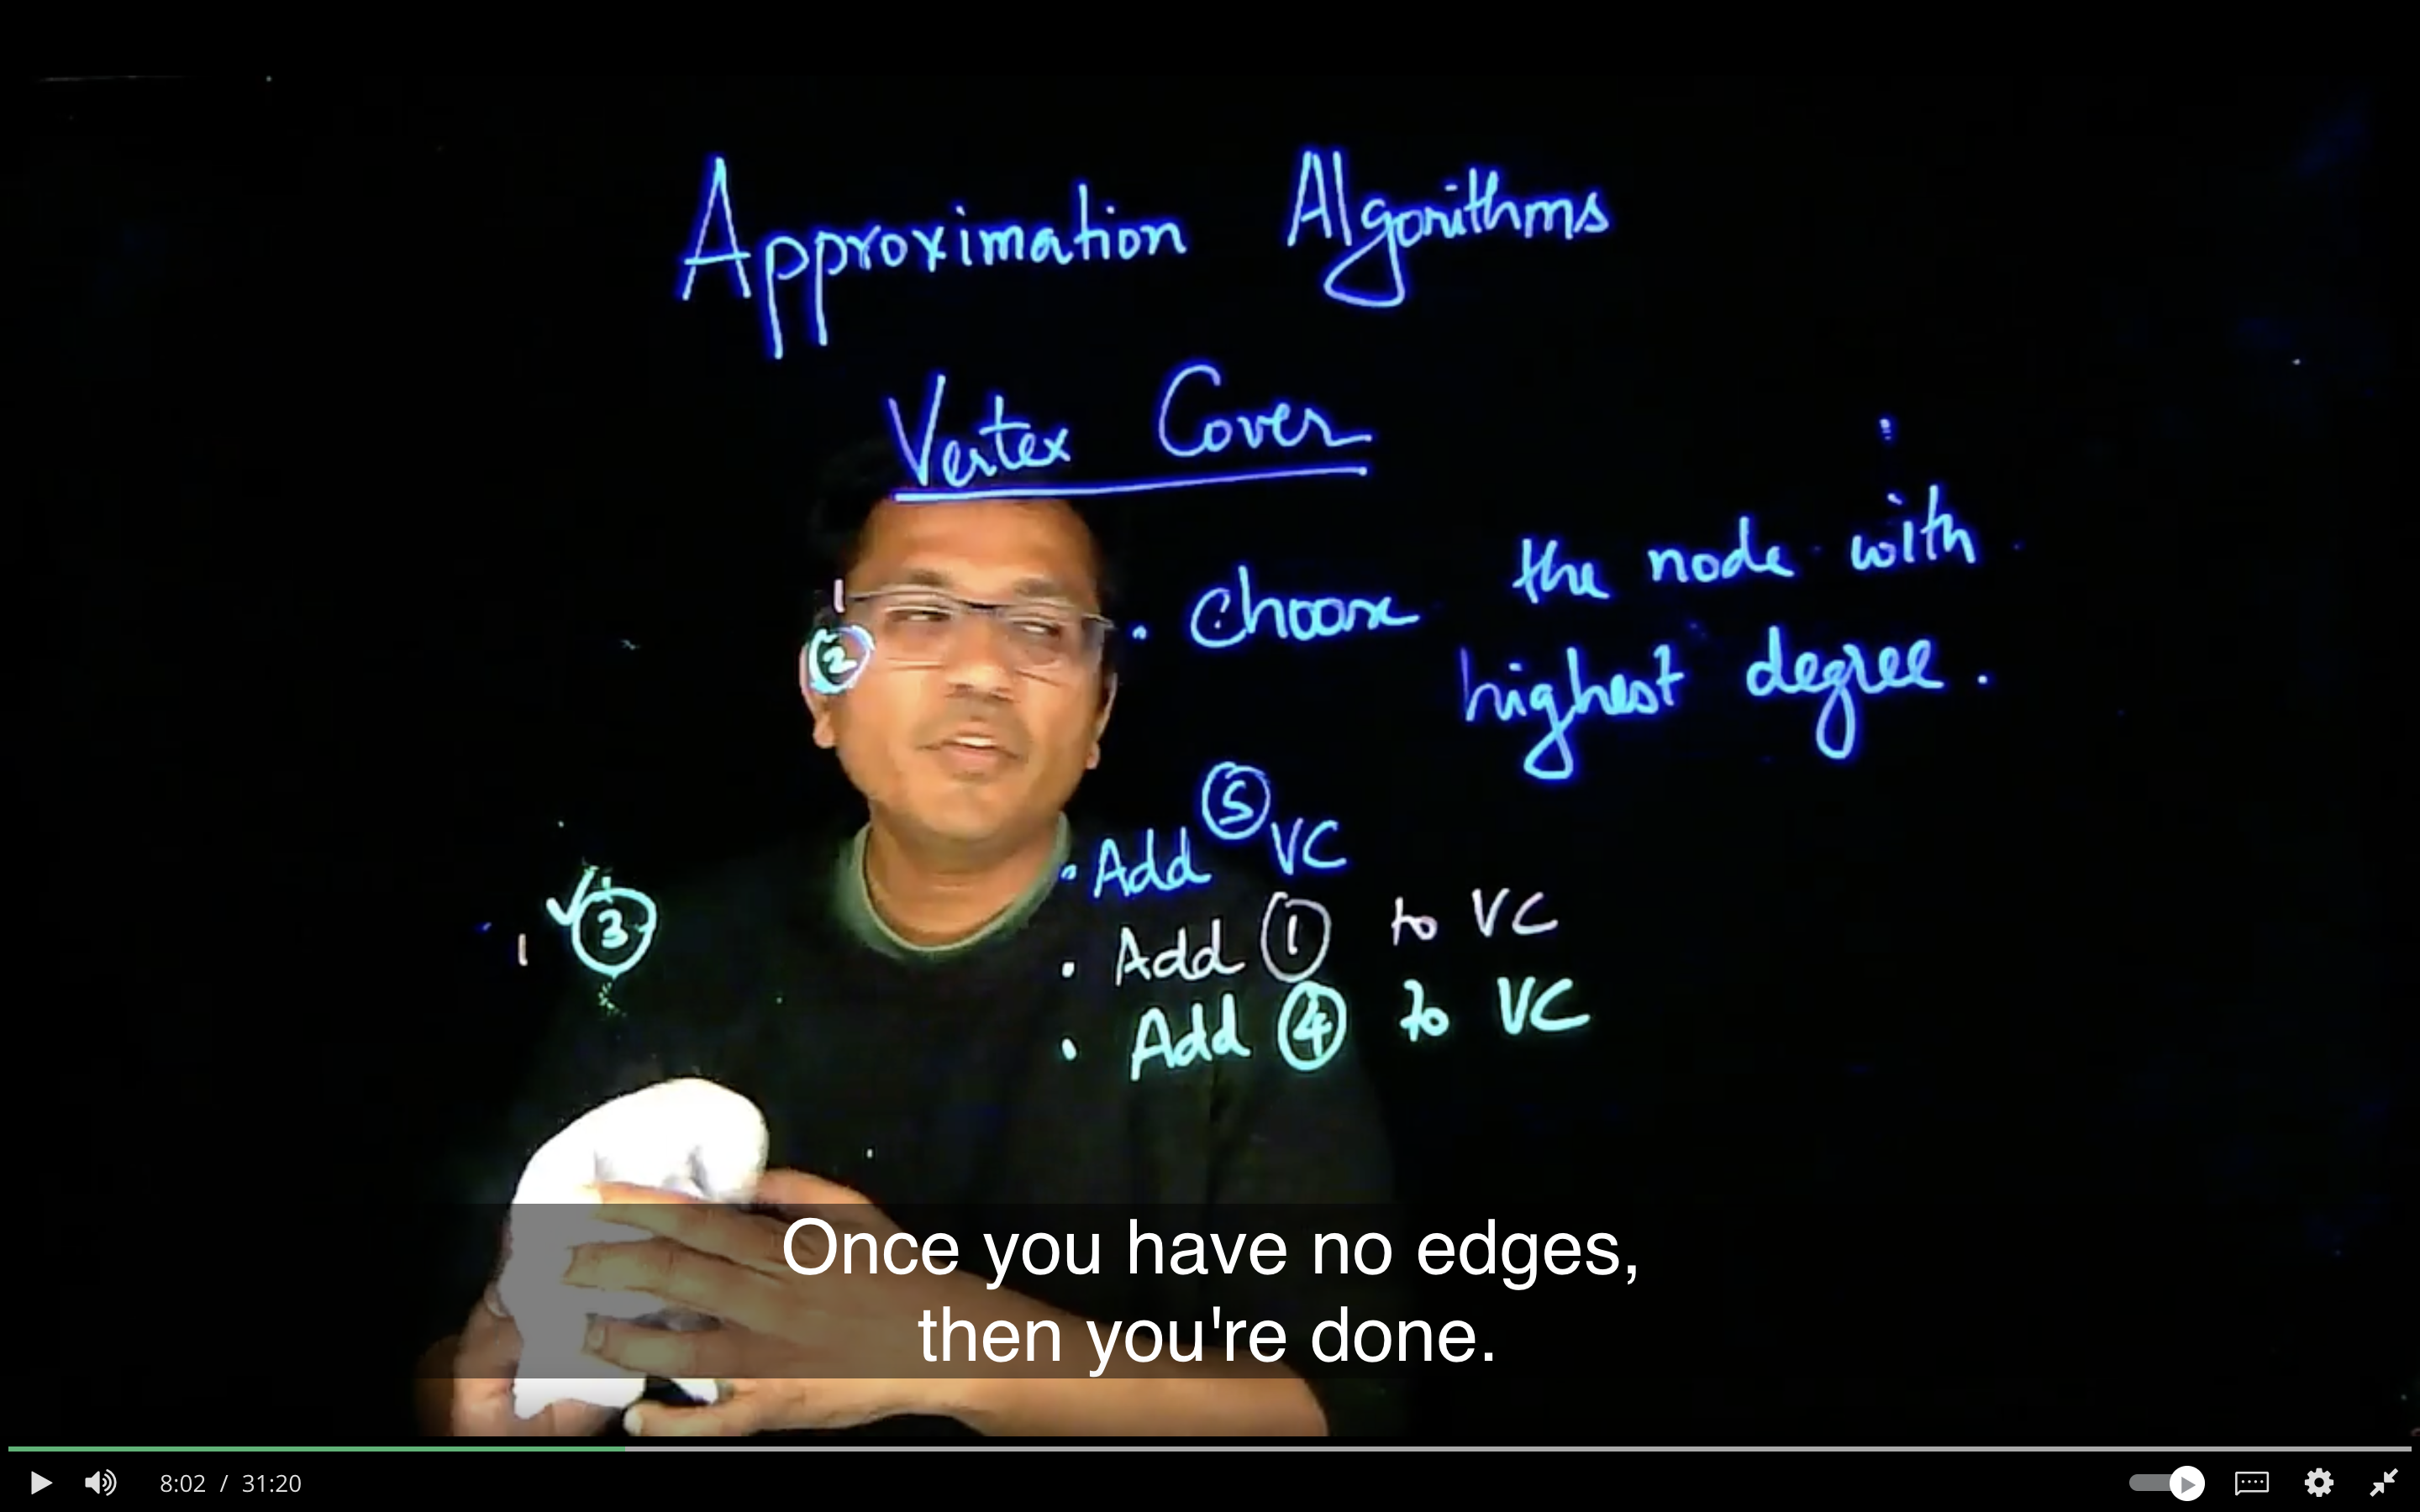 Approximation Algorithms
Vertex Cover
1
2
• Choose the node with
highest degree.
• Add 5 VC
1 3
• Add 1 to VC
• Add 4 to VC
Once you have no edges,
then you're done.
8:02 / 31:20